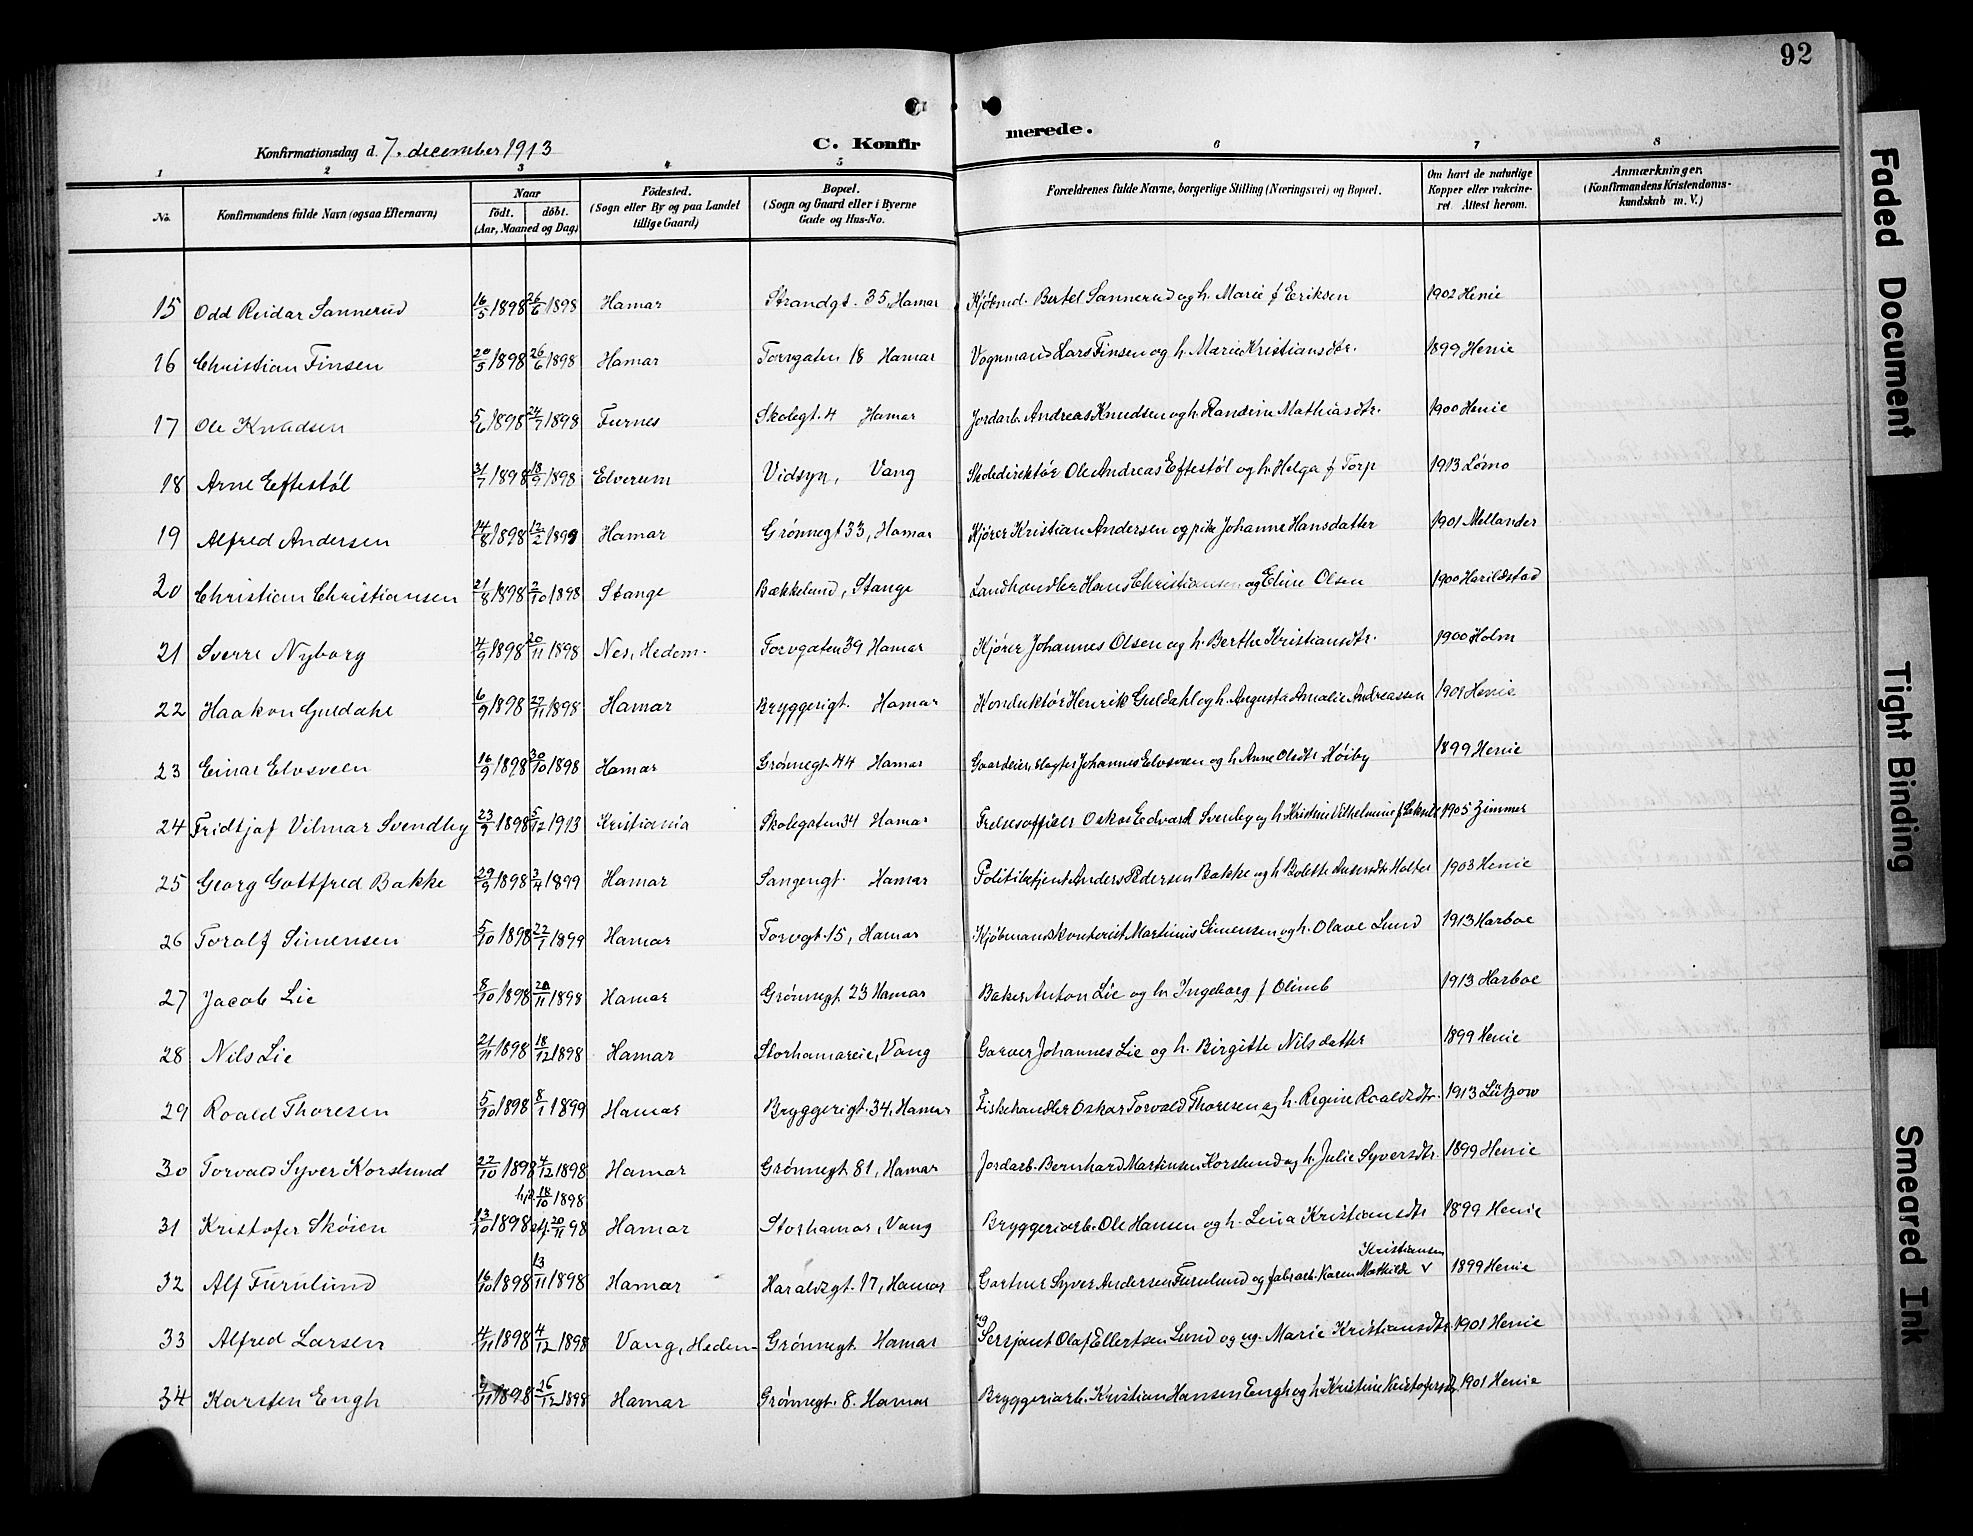 92
Konfirmationsdag d. 7. december 1913
C. Konfir
merede.
1 2 3 4 5 6 7 8
No. Konfirmandens fulde Navn (ogsaa Efternavn) Naar født. døbt. (Aar, Maaned og Dag) Fødested. (Sogn eller By og paa Landet tillige Gaard) Bopæl. (Sogn og Gaard eller i Byerne Gade og Hus-No. Forældrenes fulde Navne, borgerlige Stilling (Næringsvei) og Bopæl. Om havt de naturlige Kopper eller vakcineret. Attest herom. Anmærkninger. (Konfirmandens Kristendomskundskab m. V.)
15 Odd Reidar Sannerud 16/5 1898 26/6 1898 Hamar Strandgt. 35, Hamar Kjøbmd. Bertel Sannerud og h. Marie f Eriksen 1902 Henie
16 Christian Finsen 20/5 1898 26/6 1898 Hamar Torvgaten 18 Hamar Vognmand Lars Finsen og h. Marie Kristiansdtr. 1899 Henie
17 Ole Knudsen 5/6 1898 24/7 1898 Furnes Skolegt. 4 Hamar Jordarb. Andreas Knudsen og h. Randine Mathiasdtr. 1900 Henie
18 Arne Eftestøl 31/7 1898 18/9 1898 Elverum Vidsyn, Vang Skoledirektør Ole Andreas Eftestøl og h. Helga f Torp 1913 Lømo
19 Alfred Andersen 14/8 1898 12/2 1899 Hamar Grønnegt 33, Hamar Kjører Kristian Andersen og pike Johanne Hansdatter 1901 Mellander
20 Christian Christiansen 21/8 1898 2/10 1898 Stange Bækkelund, Stange Landhandler Hans Christiansen og Eline Olsen 1900 Harildstad
21 Sverre Nyborg 4/9 1898 20/11 1898 Nes, Hedem. Torvgaten 39 Hamar Kjører Johannes Olsen og h. Berthe Kristiansdtr. 1900 Holm
22 Haakon Guldahl 6/9 1898 27/11 1898 Hamar Bryggerigt. Hamar Konduktør Henrik Guldahl og h. Augusta Amalie Andreassen 1901 Henie
23 Einar Elvsveen 16/9 1898 30/10 1898 Hamar Grønnegt. 44 Hamar Gaardeier, slagter Johannes Elvsveen og h Anne Olsdtr Høiby 1899 Henie
24 Fridtjof Vilmar Svendby 23/9 1898 5/12 1913 Kristiania Skolegaten 34 Hamar Frelsesoffiser Oskar Edvard Svenby og h Kristine Vilhelmine f 1905 Zimmer
25 Georg Gottfred Bakke 29/9 1898 3/4 1899 Hamar Vangengt. Hamar Politibetjent Anders Pedersen Bakke og h Bolette Holter 1903 Henie
26 Toralf Simensen 5/10 1898 22/1 1899 Hamar Torvgt. 15, Hamar Kjøbmandskontorist Martinius Simensen og h. Olave Lund 1913 Harboe
27 Jacob Lie 8/10 1898 20/11 1898 Hamar Grønnegt 23 Hamar Baker Anton Lie og h. Ingeborg f Olimb 1913 Harboe
28 Nils Lie 21/11 1898 18/12 1898 Hamar Storhamareie, Vang Garver Johannes Lie og h. Birgitte Nilsdatter 1899 Henie
29 Roald Thoresen 5/10 1898 8/1 1899 Hamar Bryggerigt. 34, Hamar Fiskehandler Oskar Torvald Thoresen og h. Regine Roaldsdtr. 1913 Lützow
30 Torvald Syver Korslund 22/10 1898 4/12 1898 Hamar Grønnegt 81, Hamar Jordarb. Bernhard Martinsen Korslund og h. Julie Syversdtr. 1899 Henie
hj. 18/10 1898
31 Kristofer Skøien 13/10 1898 stf. 20/11 98 Hamar Storhamar, Vang Bryggeriarb. Ole Hansen og h. Lina Kristiansdtr 1899 Henie
Kristiansen
32 Alf Furulund 16/10 1898 13/11 1898 Hamar Haraldsgt. 17, Hamar Gartner Syver Andersen Furulund og fabrarb. Karen Mathilde v 1899 Henie
33 Alfred Larsen 4/11 1898 4/12 1898 Vang, Hedem Grønnegt. Hamar ug Sersjant Olaf Ellertsen Lund og ug. Marie Kristiansdtr 1901 Henie
34 Karsten Engh 9/11 1898 26/12 1898 Hamar Grønnegt. 8. Hamar Bryggeriarb. Kristian Hansen Engh og h. Kristine Kristofersdtr 1901 Henie
Faded Document
Tight Binding
Smeared Ink